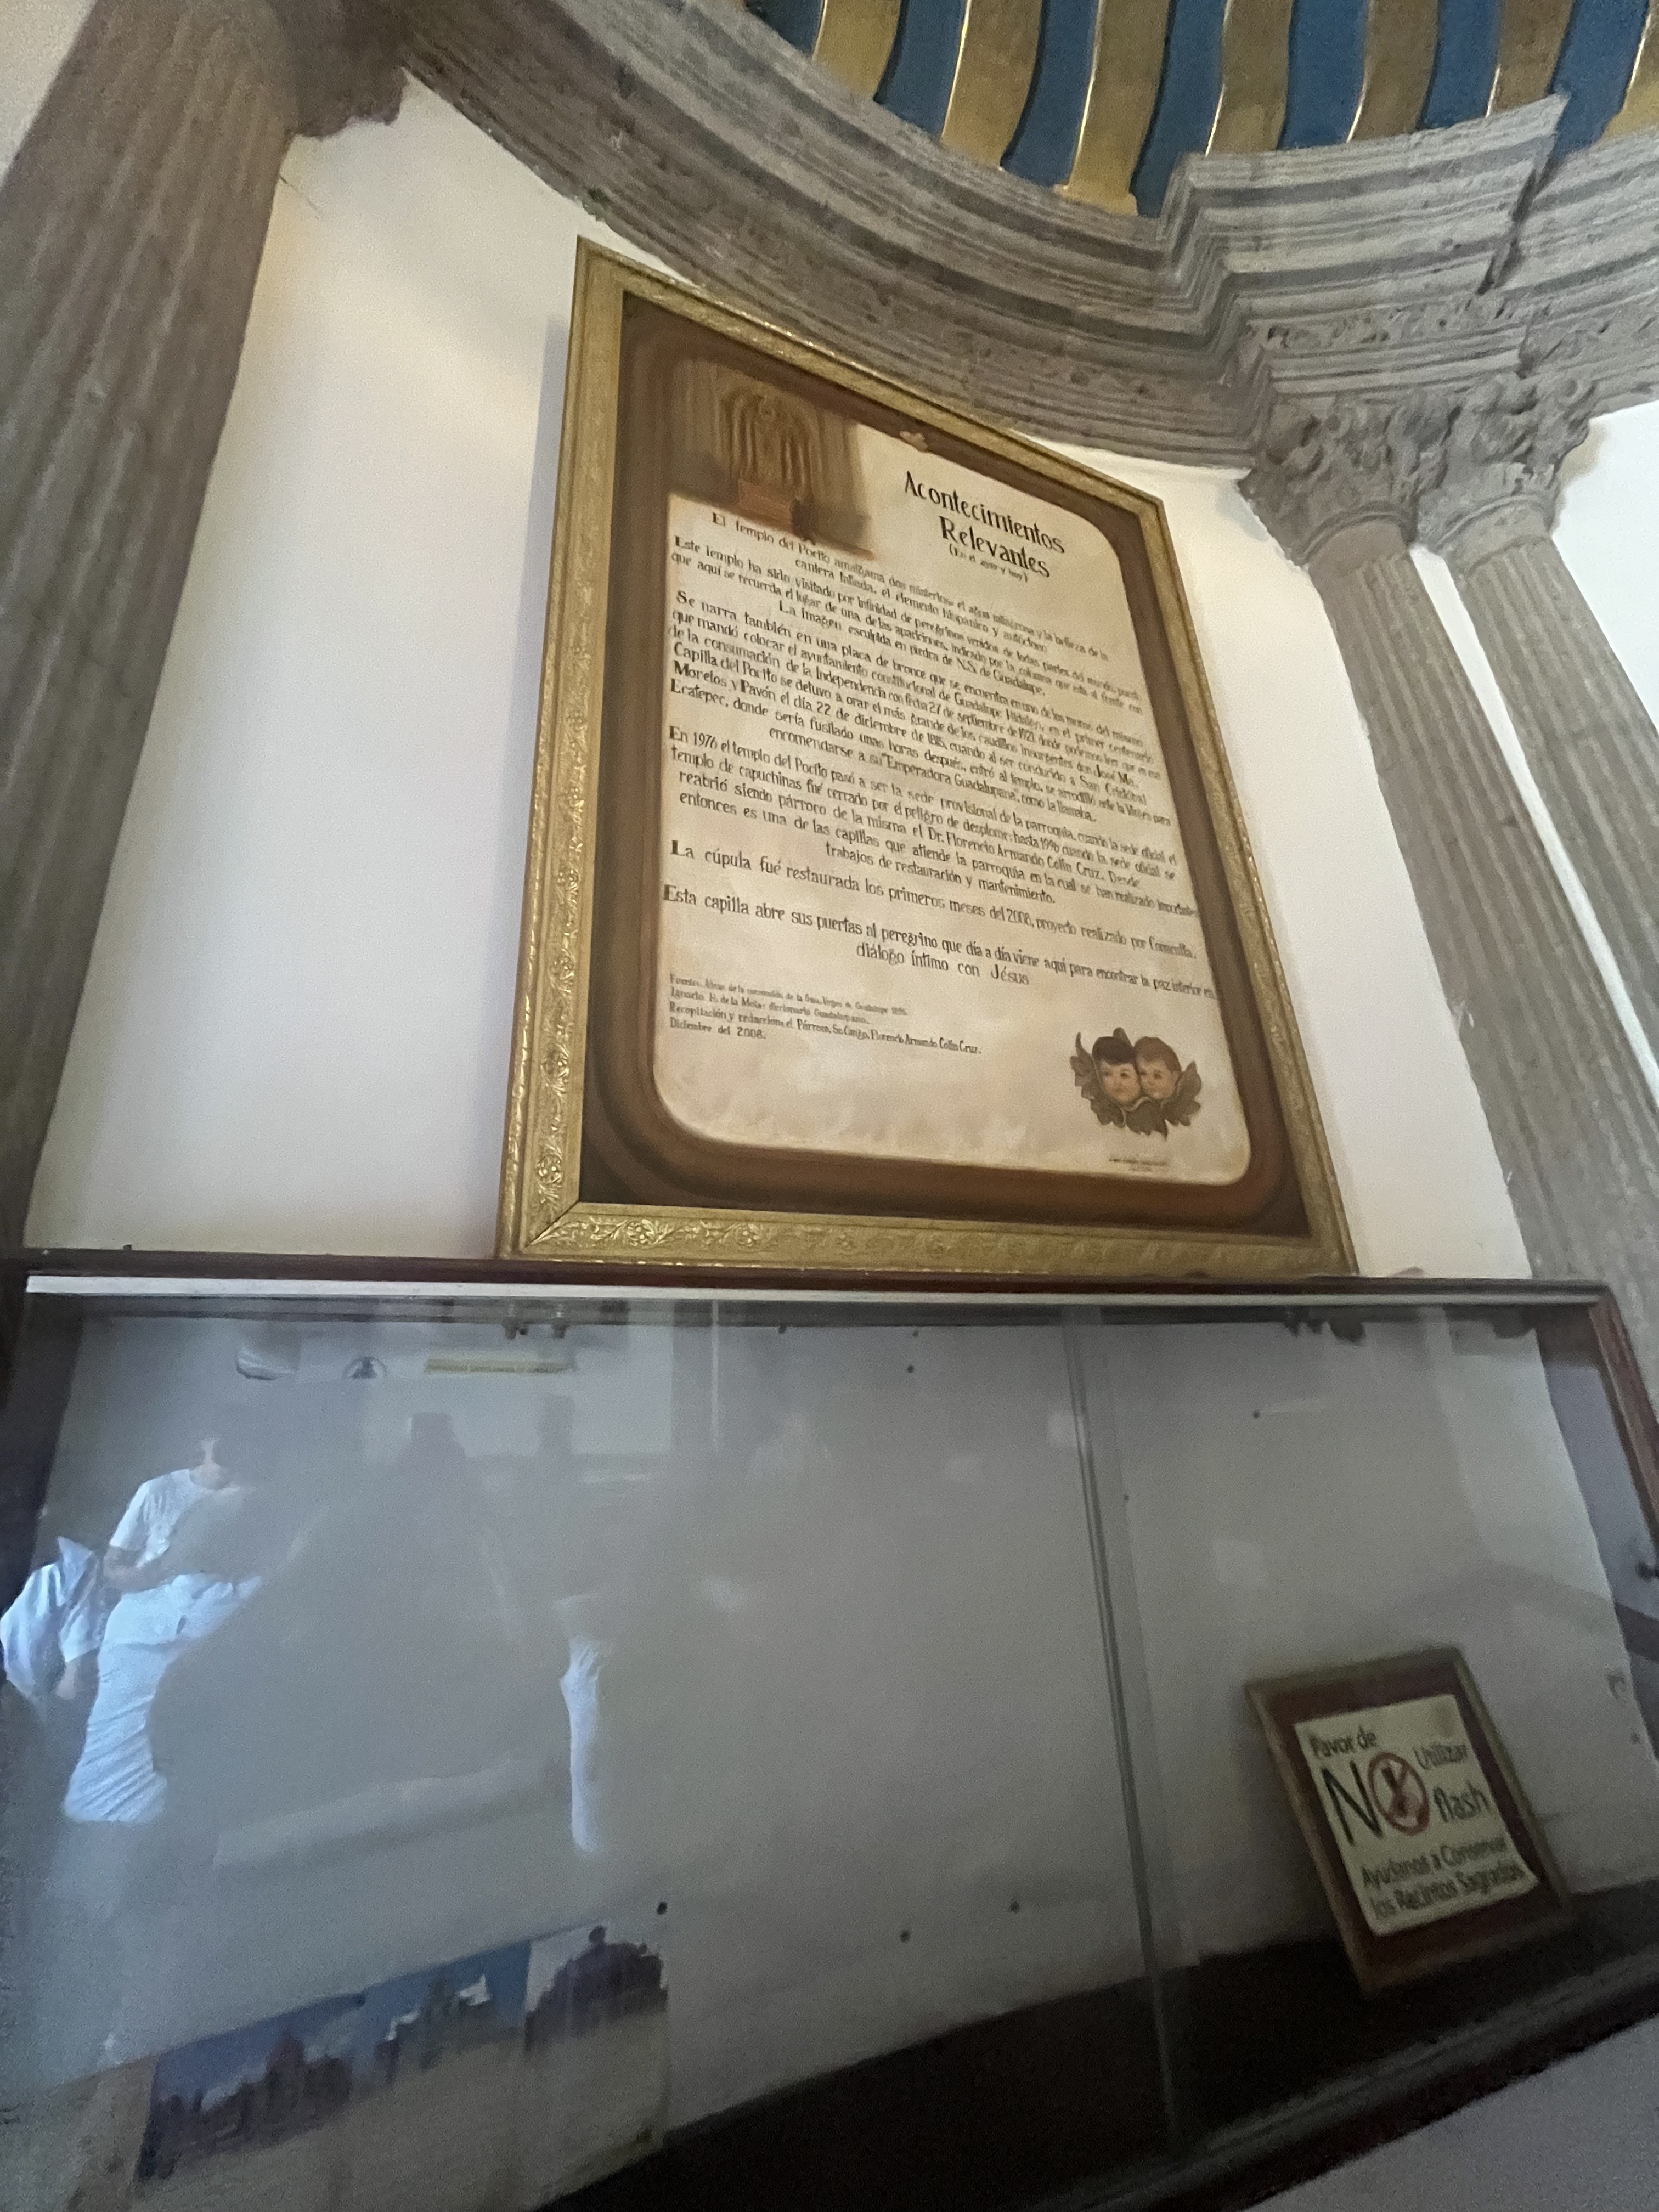 Acontecimientos
Relevantes
(En el ayer y hoy)
El templo del Pocito amalgama dos misterios, el agua milagrosa y la belleza de la
cantera tallada, el elemento hispánico y autóctono.
Este templo ha sido visitado por infinidad de peregrinos venidos de todas partes del mundo, puesto
que aquí se recuerda el lugar de una de las apariciones, indicado por la columna que esta al frente con
La imagen esculpida en piedra de N.S. de Guadalupe.
Se narra también en una placa de bronce que se encuentra en uno de los muros del mismo
que mandó colocar el ayuntamiento constitucional de Guadalupe Hidalgo, en el primer centenario
de la consumación de la Independencia con fecha 27 de septiembre de 1921, donde podemos leer que en esa
Capilla del Pocito se detuvo a orar el más grande de los caudillos insurgentes don José Ma.
Morelos y Pavón el día 22 de diciembre de 1815, cuando al ser conducido a San Cristóbal
Ecatepec, donde sería fusilado unas horas después, entró al templo, se arrodilló ante la Virgen para
encomendarse a su "Emperadora Guadalupana", como la llamaba.
En 1976 el templo del Pocito pasó a ser la sede provisional de la parroquia, cuando la sede oficial el
templo de capuchinas fué cerrado por el peligro de desplome; hasta 1996 cuando la sede oficial se
reabrió siendo párroco de la misma el Dr. Florencio Armando Colín Cruz. Desde
entonces es una de las capillas que atiende la parroquia en la cual se han realizado importantes
trabajos de restauración y mantenimiento.
La cúpula fué restaurada los primeros meses del 2006, proyecto realizado por
Esta capilla abre sus puertas al peregrino que día a día viene aquí para encontrar la paz interior en
diálogo íntimo con Jésus
Fuentes: de la coronación de la Sma. Virgen de Guadalupe 1895.
Ignacio H. de la Mota: diccionario Guadalupano.
Recopilación y redacción: el Párroco, Sr. Cango. Florencio Armando Colín Cruz.
Diciembre del 2008.
Favor de
NO Utilizar
flash
Ayudanos a Conservar
los Recintos Sagrados